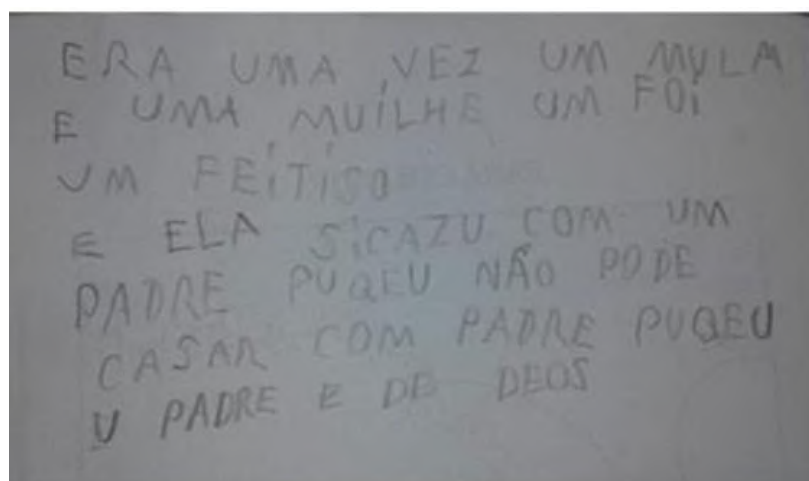 ERA UMA VEZ UM MULA
E UMA MUILHE UM FOI
UM FEITISO
E ELA SICAZU COM UM
PADRE PUQEU NÃO PODE
CASAR COM PADRE PUQEU
U PADRE E DE DEOS